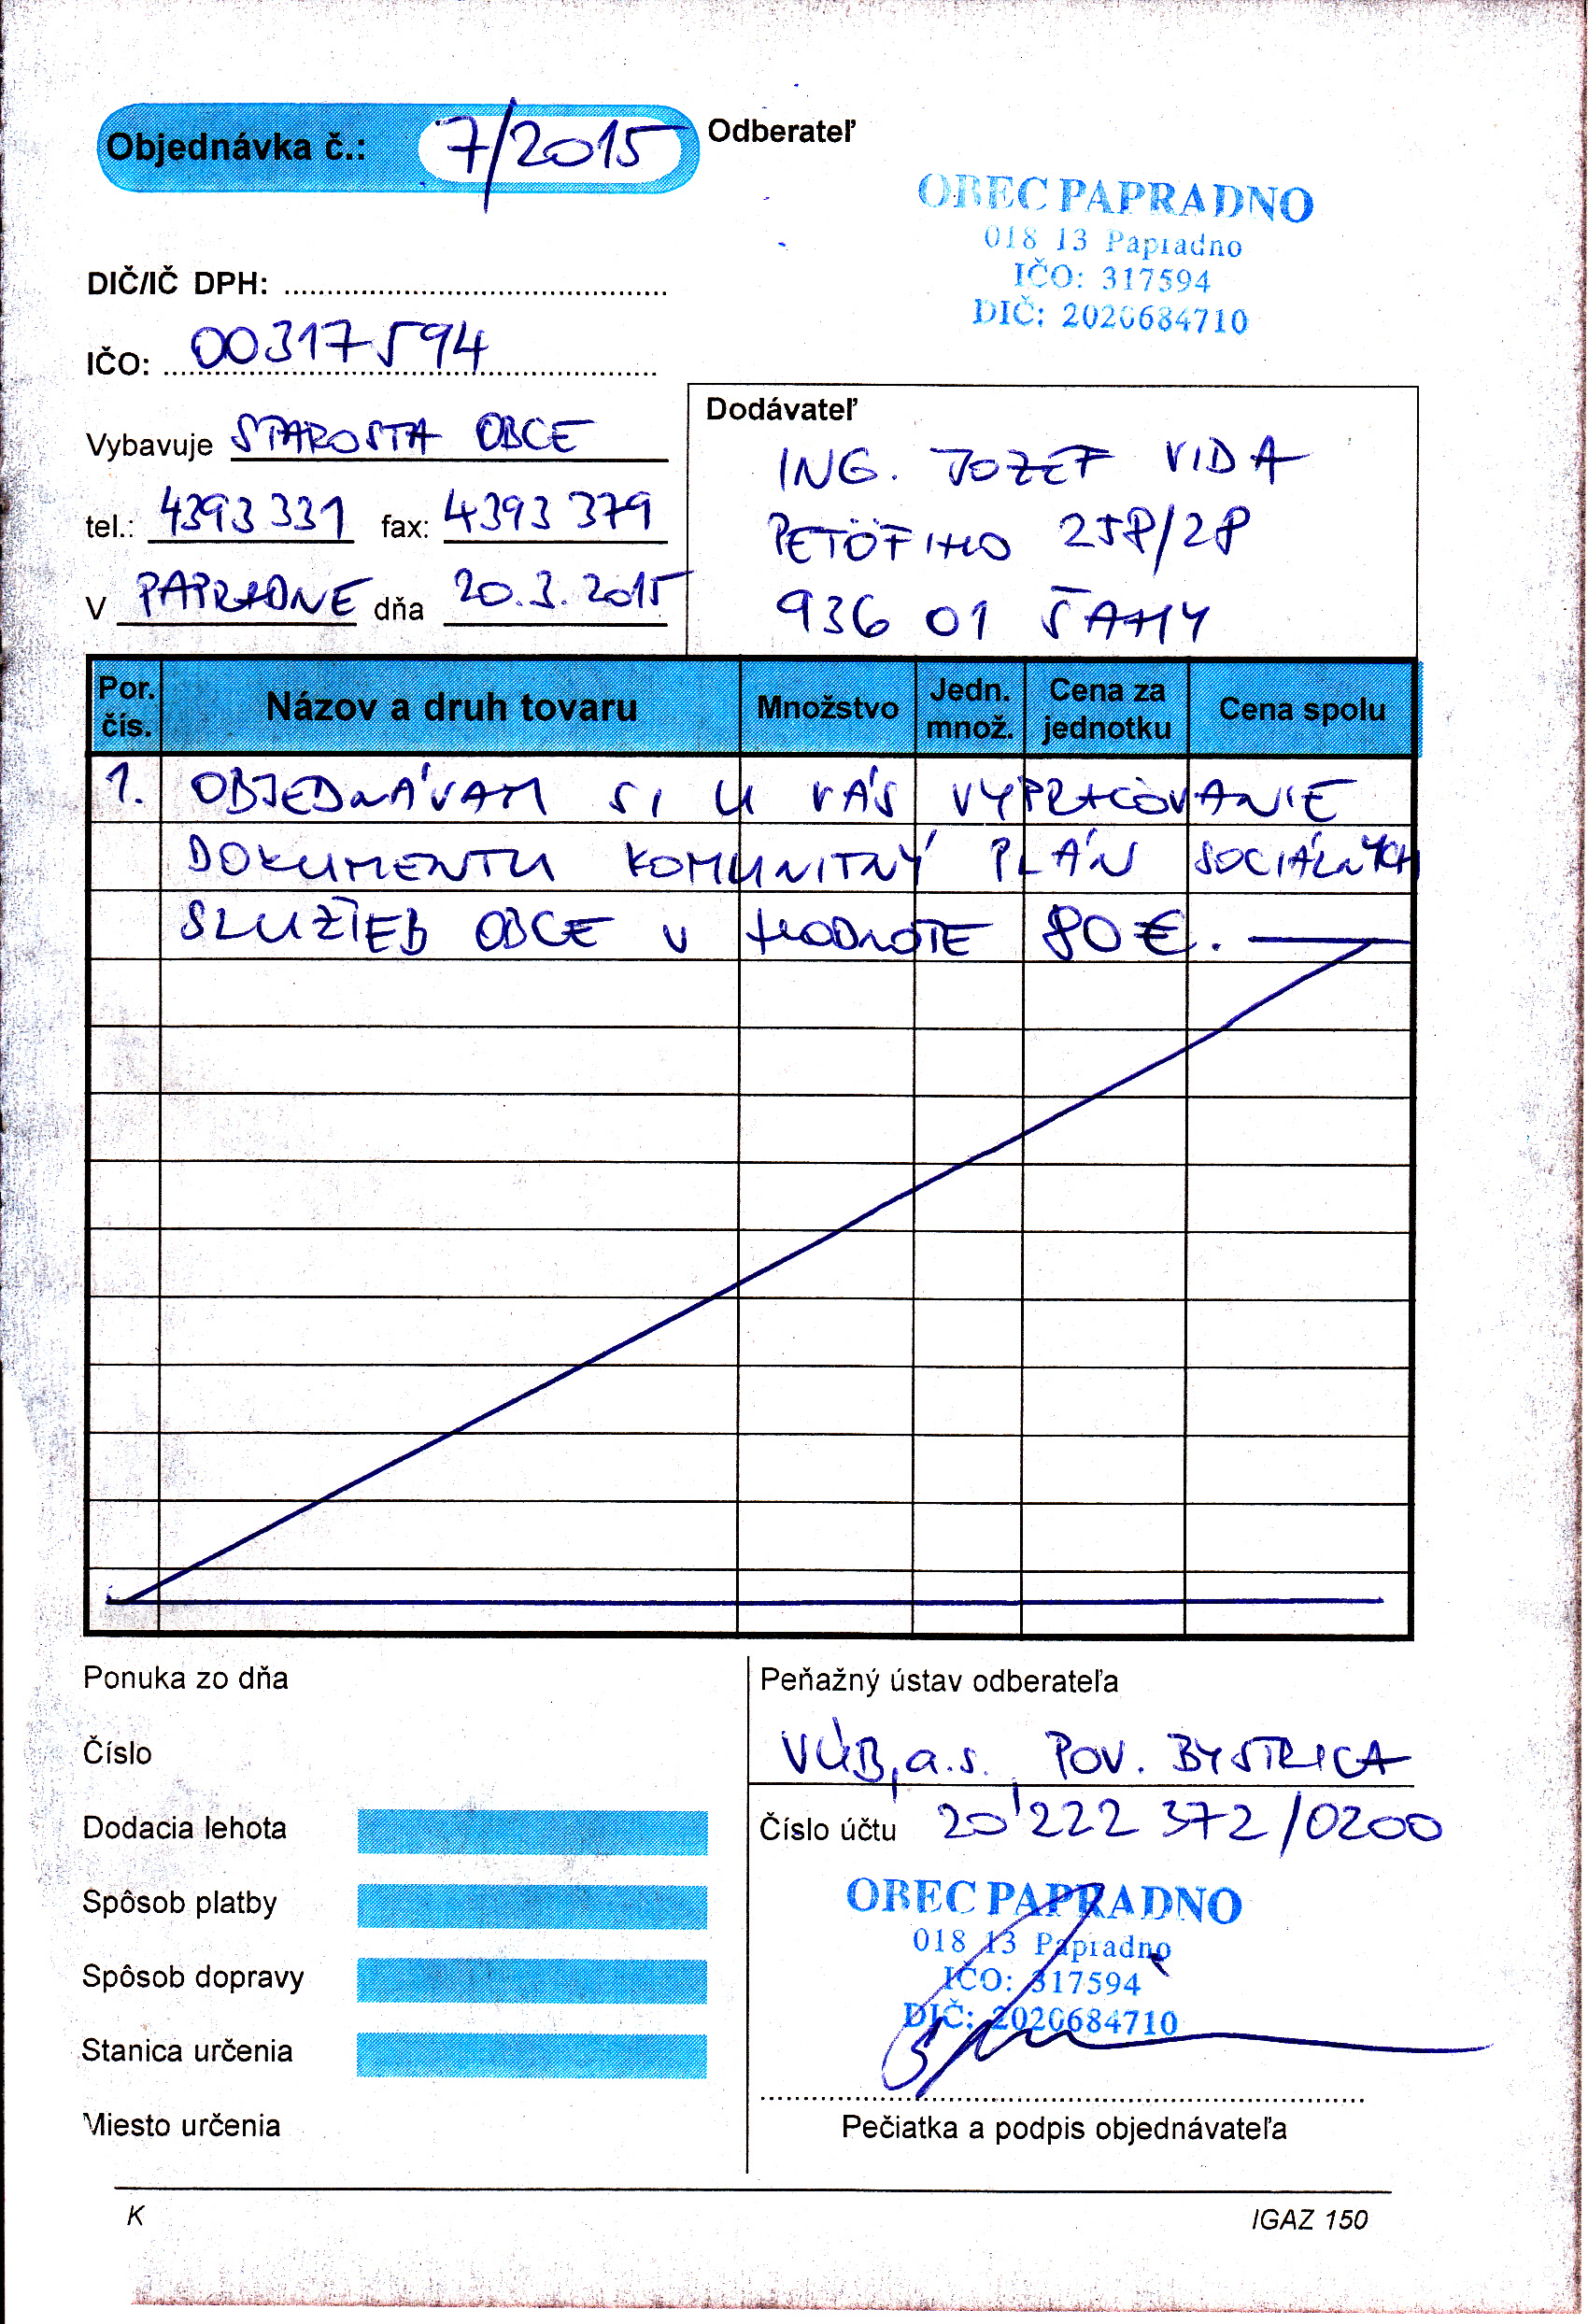 Objednávka č.: 7/2015
Odberateľ
OBEC PAPRADNO
018 13 Papradno
IČO: 317594
DIČ: 2020684710
DIČ/IČ DPH:
IČO: 00317594
Vybavuje STAROSTA OBCE
tel.: 4393 331 fax: 4393 379
V PAPRADNE dňa 20.3.2015
Dodávateľ
ING. JOZEF VIDA
PETÖFIHO 258/28
936 01 ŠAHY
Por. čís. Názov a druh tovaru Množstvo Jedn. množ. Cena za jednotku Cena spolu
1. OBJEDNÁVAM SI U VÁS VYPRACOVANIE
DOKUMENTU KOMUNITNÝ PLÁN SOCIÁLNYCH
SLUŽIEB OBCE V HODNOTE 80 €.
Ponuka zo dňa
Číslo
Dodacia lehota
Spôsob platby
Spôsob dopravy
Stanica určenia
Miesto určenia
Peňažný ústav odberateľa
VÚB, a.s., POV. BYSTRICA
Číslo účtu 20 222 372/0200
OBEC PAPRADNO
018 13 Papradno
IČO: 317594
DIČ: 2020684710
Pečiatka a podpis objednávateľa
K
IGAZ 150